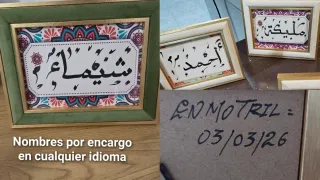 شيماء
Nombres por encargo
en cualquier idioma
أحمد
مليكة
EN MOTRIL =
03/03/26